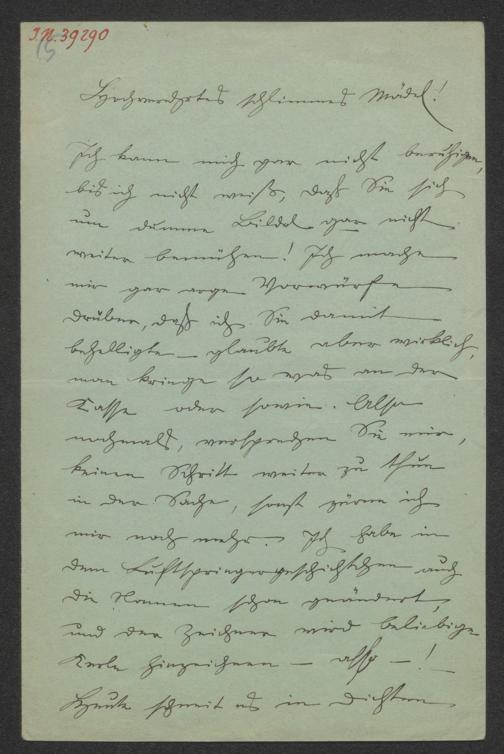 J.N. 39290
15
Hochverehrtes schlimmes Mädel!
Ich kann mich gar nicht beruhigen,
bis ich nicht weiß, daß Sie sich
um dumme Bildel gar nicht
weiter bemühen! Ich mache
mir gar arge Vorwürfe
drüber, daß ich Sie damit
behelligte – glaubte aber wirklich,
man kriege so was an der
Kasse oder sowie. Also
nochmals, versprechen Sie mir,
keinen Schritt weiter zu thun
in der Sache, sonst zürne ich
mir noch mehr. Ich habe in
dem Luftspringergeschichtchen auch
die Namen schon geändert,
und der Zeichner wird beliebige
Kerle hinzeichnen – also – !
Heute schneit es in dichten